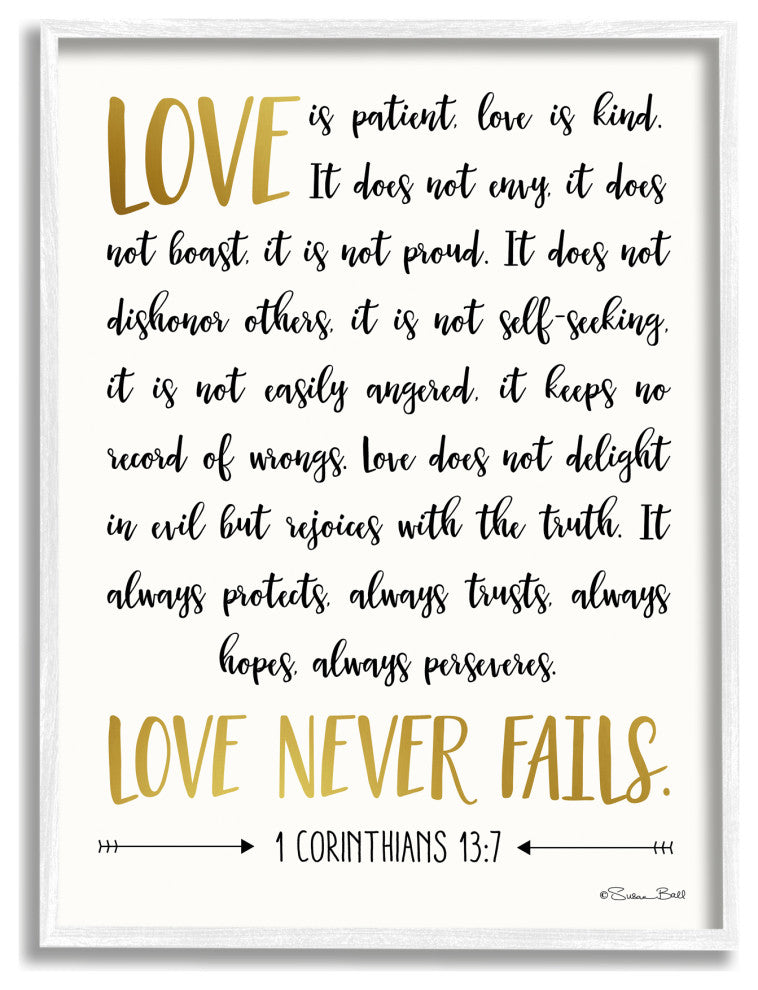 LOVE is patient, love is kind.
It does not envy, it does
not boast, it is not proud. It does not
dishonor others, it is not self-seeking,
it is not easily angered, it keeps no
record of wrongs. Love does not delight
in evil but rejoices with the truth. It
always protects, always trusts, always
hopes, always perseveres.
LOVE NEVER FAILS.
1 CORINTHIANS 13:7
©Susan Ball